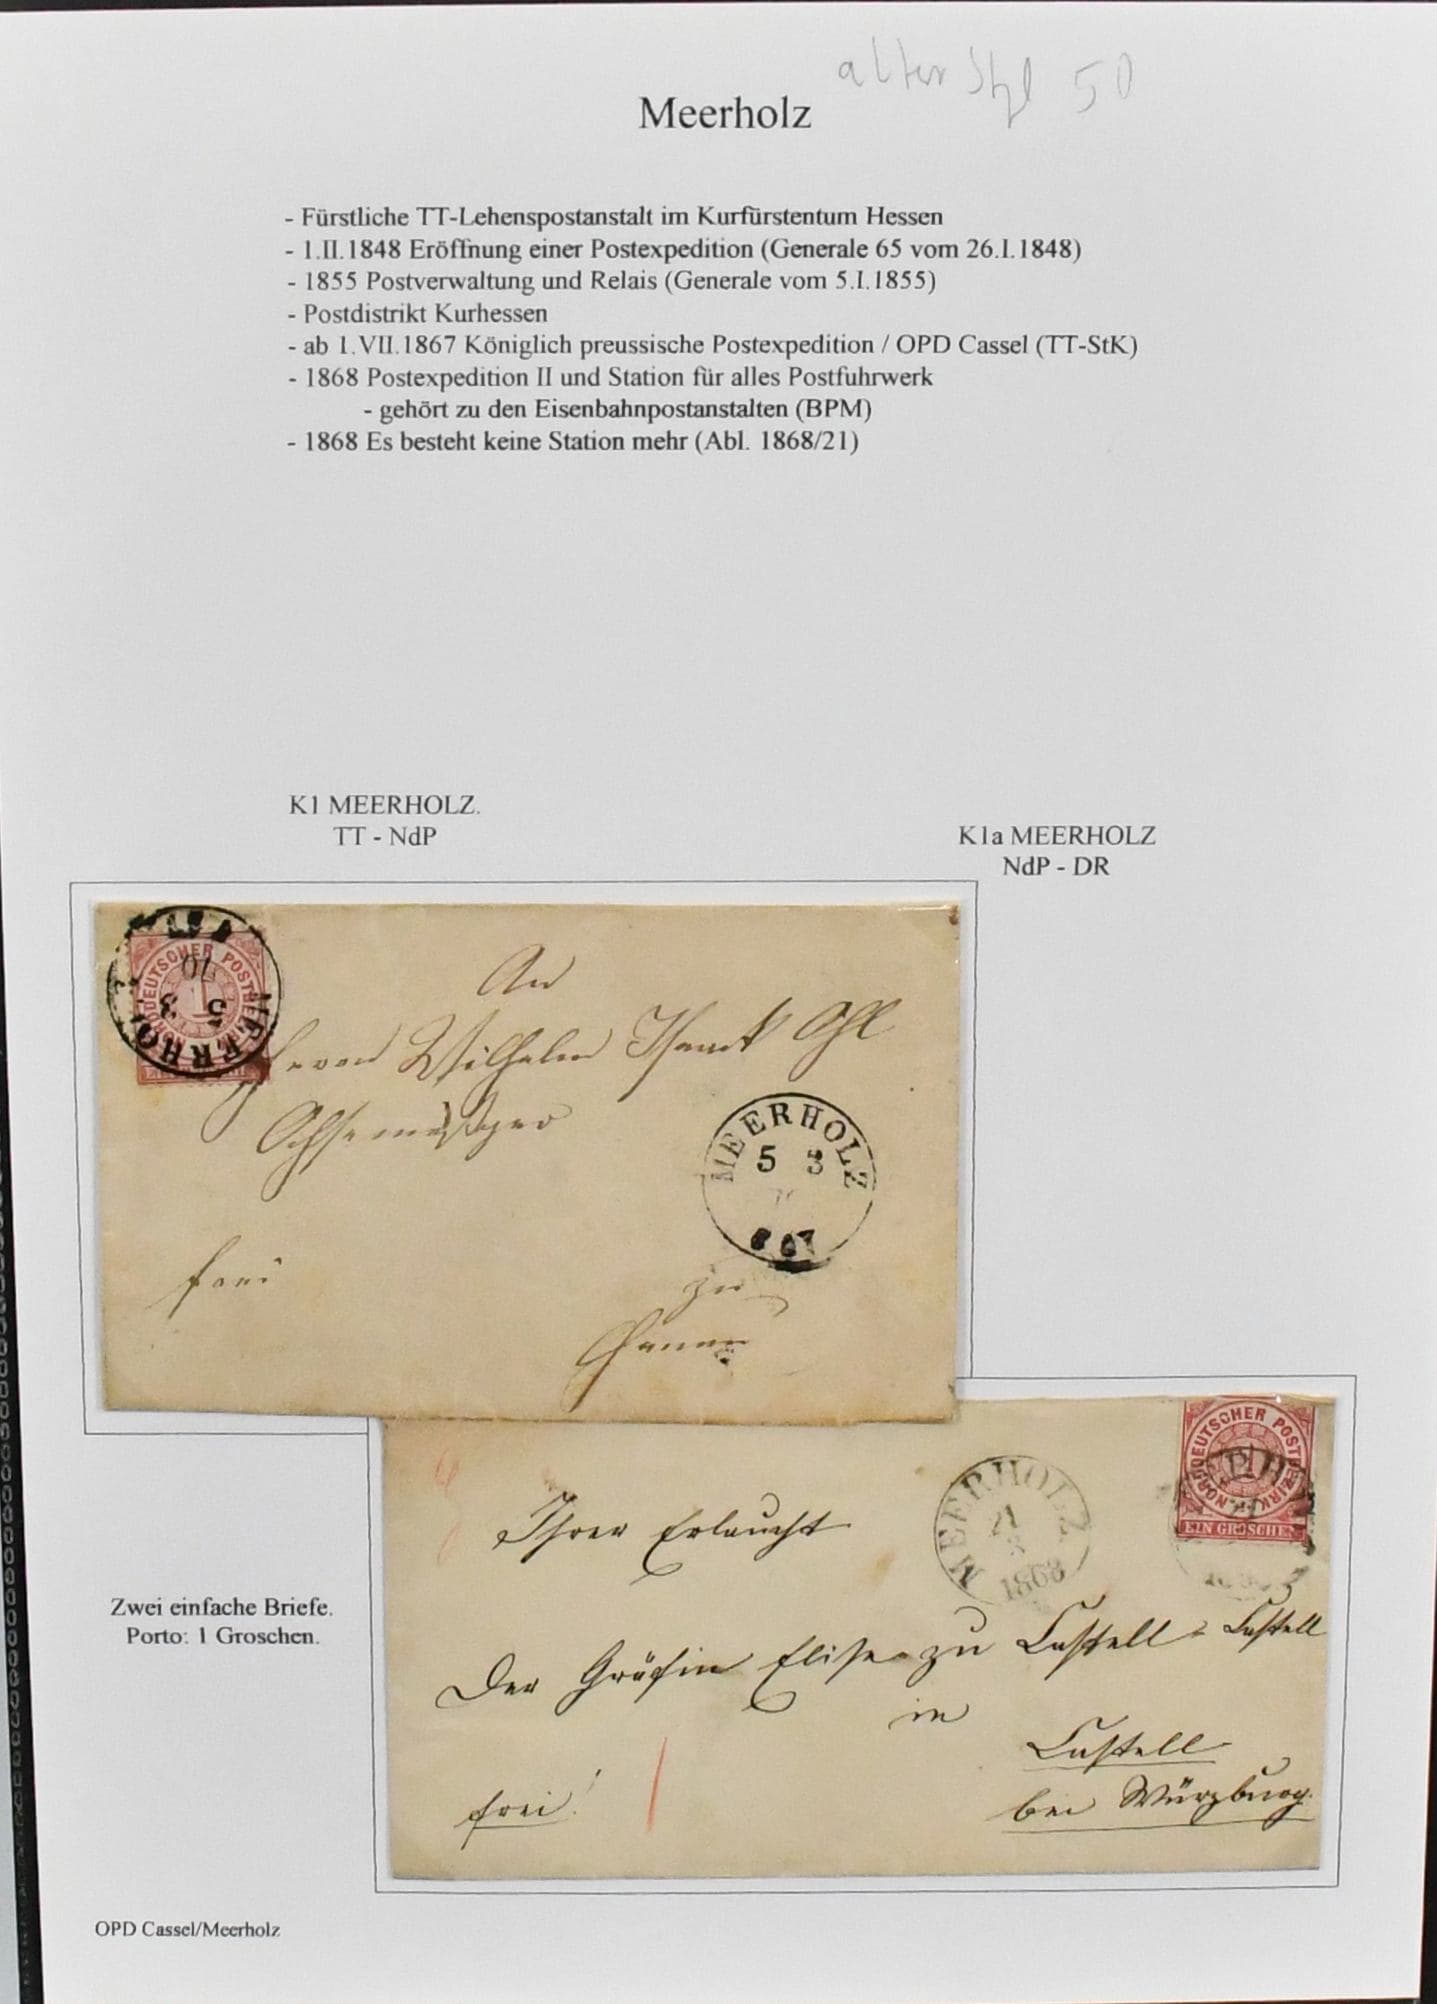 alter Stpl 50
Meerholz
- Fürstliche TT-Lehenspostanstalt im Kurfürstentum Hessen
- 1.II.1848 Eröffnung einer Postexpedition (Generale 65 vom 26.I.1848)
- 1855 Postverwaltung und Relais (Generale vom 5.I.1855)
- Postdistrikt Kurhessen
- ab 1.VII.1867 Königlich preussische Postexpedition / OPD Cassel (TT-StK)
- 1868 Postexpedition II und Station für alles Postfuhrwerk
- gehört zu den Eisenbahnpostanstalten (BPM)
- 1868 Es besteht keine Station mehr (Abl. 1868/21)
K1 MEERHOLZ.
TT - NdP
K1a MEERHOLZ
NdP - DR
NORDDEUTSCHER POSTBEZIRK
1
MEERHOL
5 3
10
An
Herrn Wilhelm
MEERHOLZ
5 3
frei
zu
NORDDEUTSCHER POSTBEZIRK
EIN GROSCHEN
MEERHOLZ
1868
Ihrer Erlaucht
Der Gräfin Elise zu Castell-Castell
in
Castell
bei Würzburg.
frei!
Zwei einfache Briefe.
Porto: 1 Groschen.
OPD Cassel/Meerholz